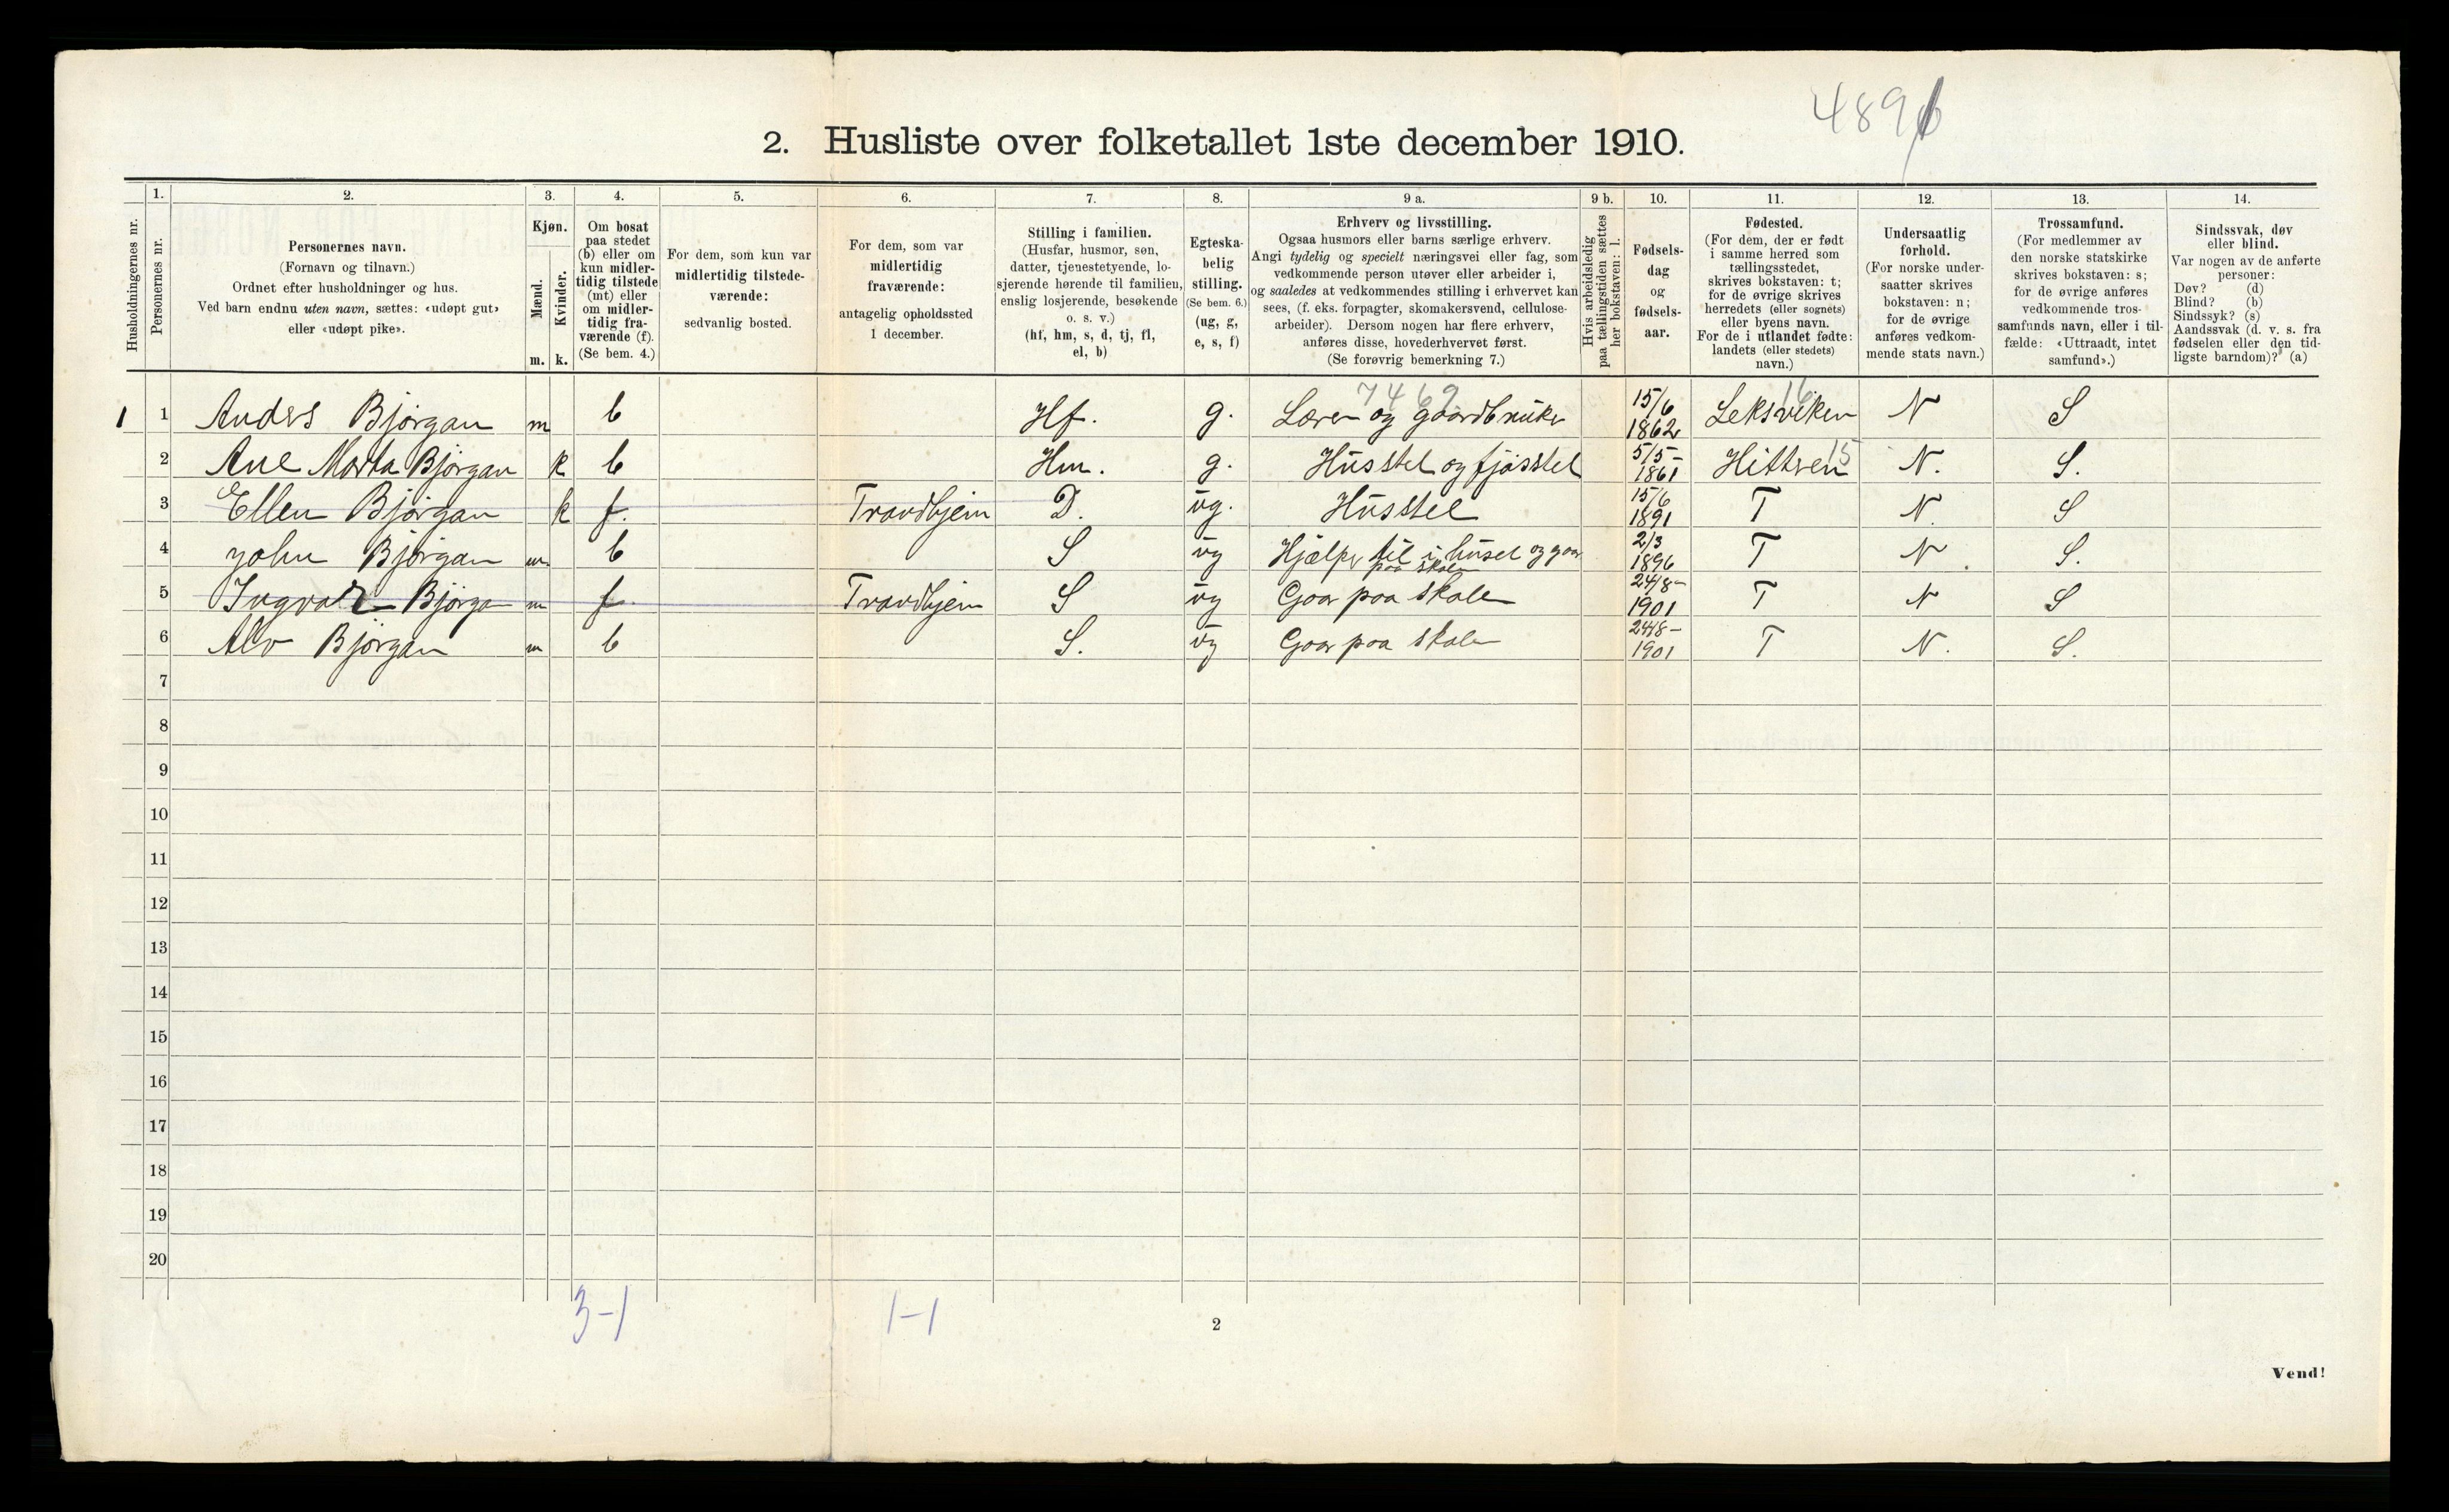 4896
2. Husliste over folketallet 1ste december 1910.
Husholdningernes nr.
1.
Personernes nr.
2.
Personernes navn.
(Fornavn og tilnavn.)
Ordnet efter husholdninger og hus.
Ved barn endnu uten navn, sættes: «udøpt gut»
eller «udøpt pike».
3.
Kjøn.
Mænd.
Kvinder.
m. k.
4.
Om bosat
paa stedet
(b) eller om
kun midler-
tidig tilstede
(mt) eller
om midler-
tidig fra-
værende (f).
(Se bem. 4.)
5.
For dem, som kun var
midlertidig tilstede-
værende:
sedvanlig bosted.
6.
For dem, som var
midlertidig
fraværende:
antagelig opholdssted
1 december.
7.
Stilling i familien.
(Husfar, husmor, søn,
datter, tjenestetyende, lo-
sjerende hørende til familien,
enslig losjerende, besøkende
o. s. v.)
(hf, hm, s, d, tj, fl,
el, b)
8.
Egteska-
belig
stilling.
(Se bem. 6.)
(ug, g,
e, s, f)
9 a.
Erhverv og livsstilling.
Ogsaa husmors eller barns særlige erhverv.
Angi tydelig og specielt næringsvei eller fag, som
vedkommende person utøver eller arbeider i,
og saaledes at vedkommendes stilling i erhvervet kan
sees, (f. eks. forpagter, skomakersvend, cellulose-
arbeider). Dersom nogen har flere erhverv,
anføres disse, hovederhvervet først.
(Se forøvrig bemerkning 7.)
9 b.
Hvis arbeidsledig
paa tællingstiden sættes
her bokstaven: l.
10.
Fødsels-
dag
og
fødsels-
aar.
11.
Fødested.
(For dem, der er født
i samme herred som
tællingsstedet,
skrives bokstaven: t;
for de øvrige skrives
herredets (eller sognets)
eller byens navn.
For de i utlandet fødte:
landets (eller stedets)
navn.)
12.
Undersaatlig
forhold.
(For norske under-
saatter skrives
bokstaven: n;
for de øvrige
anføres vedkom-
mende stats navn.)
13.
Trossamfund.
(For medlemmer av
den norske statskirke
skrives bokstaven: s;
for de øvrige anføres
vedkommende tros-
samfunds navn, eller i til-
fælde: «Uttraadt, intet
samfund».)
14.
Sindssvak, døv
eller blind.
Var nogen av de anførte
personer:
Døv? (d)
Blind? (b)
Sindssyk? (s)
Aandssvak (d. v. s. fra
fødselen eller den tid-
ligste barndom)? (a)
7462 16
1 1 Anders Bjørgan m b Hf. g. Lærer og gaardbruker 15/6 1862 Leksviken N S
2 Ane Marta Bjørgan k b Hm. g. Husstel og fjøsstel 5/5- 1861 Hitteren 15 N. S.
3 Ellen Bjørgan k f. Trondhjem D. ug. Husstel 15/6 1891 T N. S
4 John Bjørgan m b S ug Hjælper til i huset og gaar paa skolen 2/3 1896 T N. S.
5 Ingvar Bjørgan m f Trondhjem S ug Gaar paa skole 24/8- 1901 T N S
6 Alv Bjørgan m b S. ug Gaar paa skole 24/8- 1901 T N. S.
7
8
9
10
11
12
13
14
15
16
17
18
19
20
3-1 1-1
2
Vend!